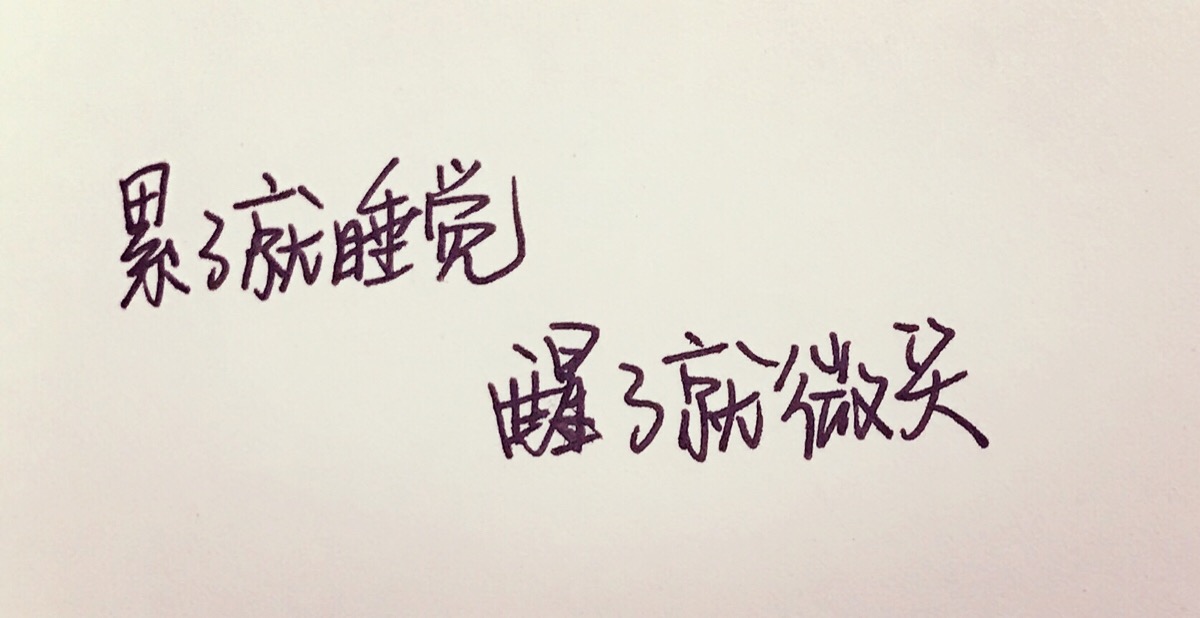 累了就睡觉
醒了就微笑